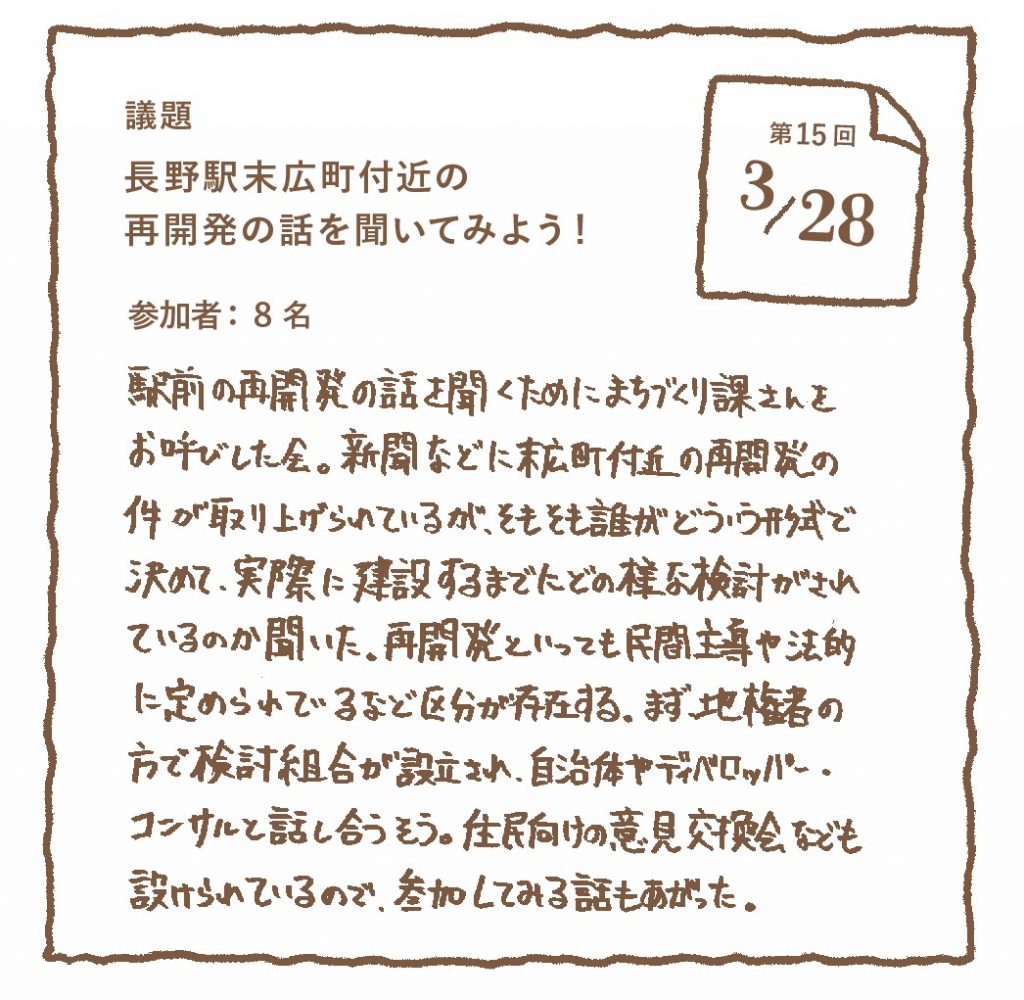 議題
長野駅末広町付近の
再開発の話を聞いてみよう！
第15回
3/28
参加者：8名
駅前の再開発の話を聞くためにまちづくり課さんを
お呼びした会。新聞などに末広町付近の再開発の
件が取り上げられているが、そもそも誰がどういう形式で
決めて、実際に建設するまでにどの様な検討がされ
ているのか聞いた。再開発といっても民間主導や法的
に定められているなど区分が存在する。まず、地権者の
方で検討組合が設立され、自治体やディベロッパー・
コンサルと話し合うそう。住民向けの意見交換会なども
設けられているので、参加してみる話もあがった。